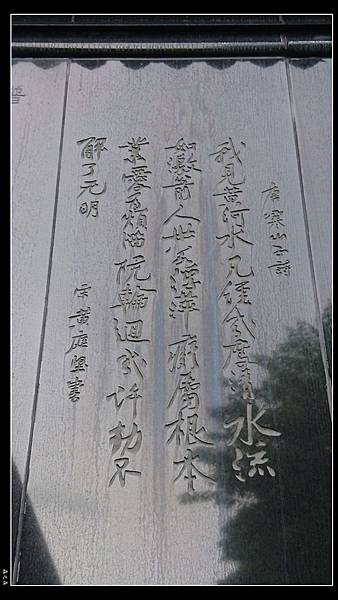 唐寒山子詩
我見黃河水凡經幾度清水流
如激箭人世若浮萍癡屬根本
業愛為煩惱坑輪迴幾許劫不
解了无明
宋黃庭堅書